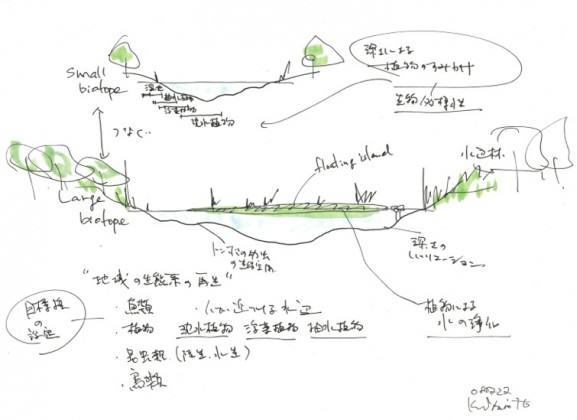 small biotope
深さによる
植物のすみわけ
生物多様性
湿地
抽水植物
浮葉植物
沈水植物
つなぐ
Large biotope
floating island
水辺林
トンボの幼虫
の生息空間
深さの
バリエーション
"地域の生態系の再生"
植物による
水の浄化
目標種
の設定
・魚類
人に近づける水辺
・植物 沈水植物 浮葉植物 抽水植物
・昆虫類 (陸生.水生)
・鳥類